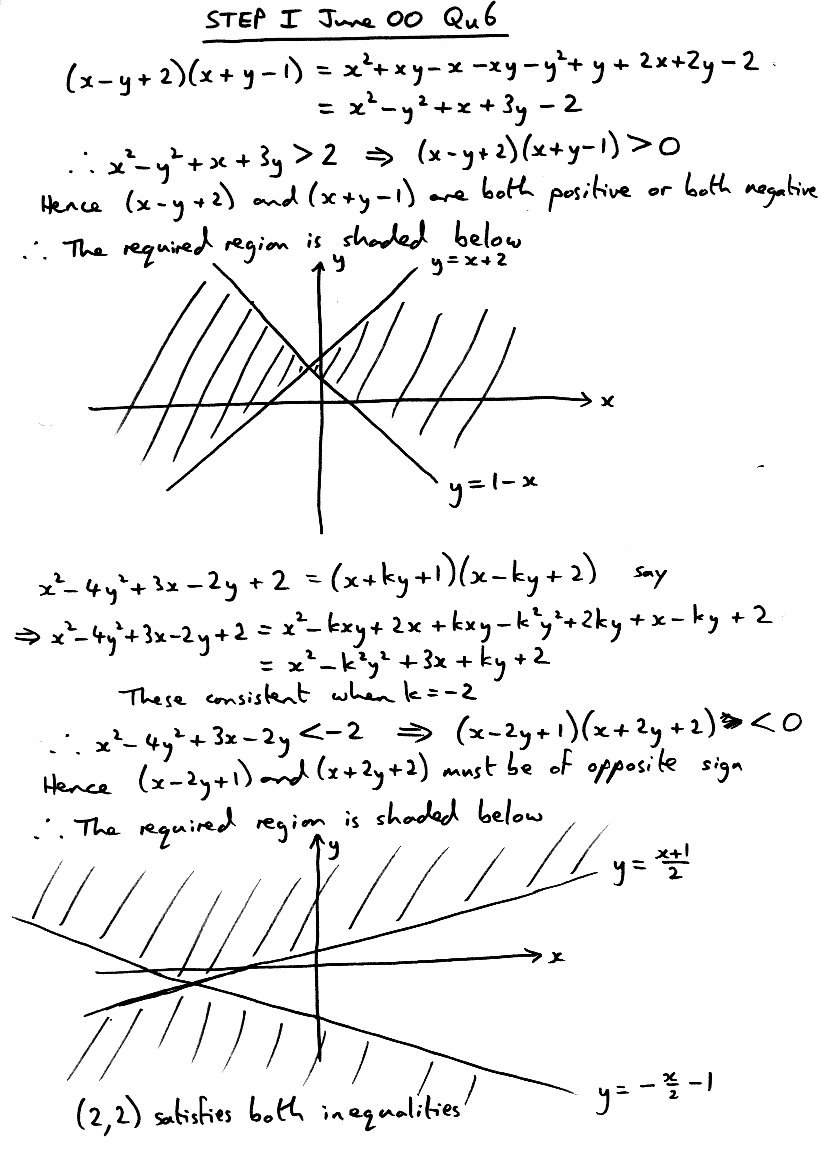 STEP I June 00 Qu 6
(x-y+2)(x+y-1) = x²+xy-x-xy-y²+y+2x+2y-2
= x²-y²+x+3y-2
∴ x²-y²+x+3y>2 ⇒ (x-y+2)(x+y-1)>0
Hence (x-y+2) and (x+y-1) are both positive or both negative
∴ The required region is shaded below
y
y=x+2
x
y=1-x
x²-4y²+3x-2y+2 = (x+ky+1)(x-ky+2) say
⇒ x²-4y²+3x-2y+2 = x²-kxy+2x+kxy-k²y²+2ky+x-ky+2
= x²-k²y²+3x+ky+2
These consistent when k=-2
∴ x²-4y²+3x-2y<-2 ⇒ (x-2y+1)(x+2y+2) <0
Hence (x-2y+1) and (x+2y+2) must be of opposite sign
∴ The required region is shaded below
y
y = (x+1)/2
x
y = -x/2 -1
(2,2) satisfies both inequalities